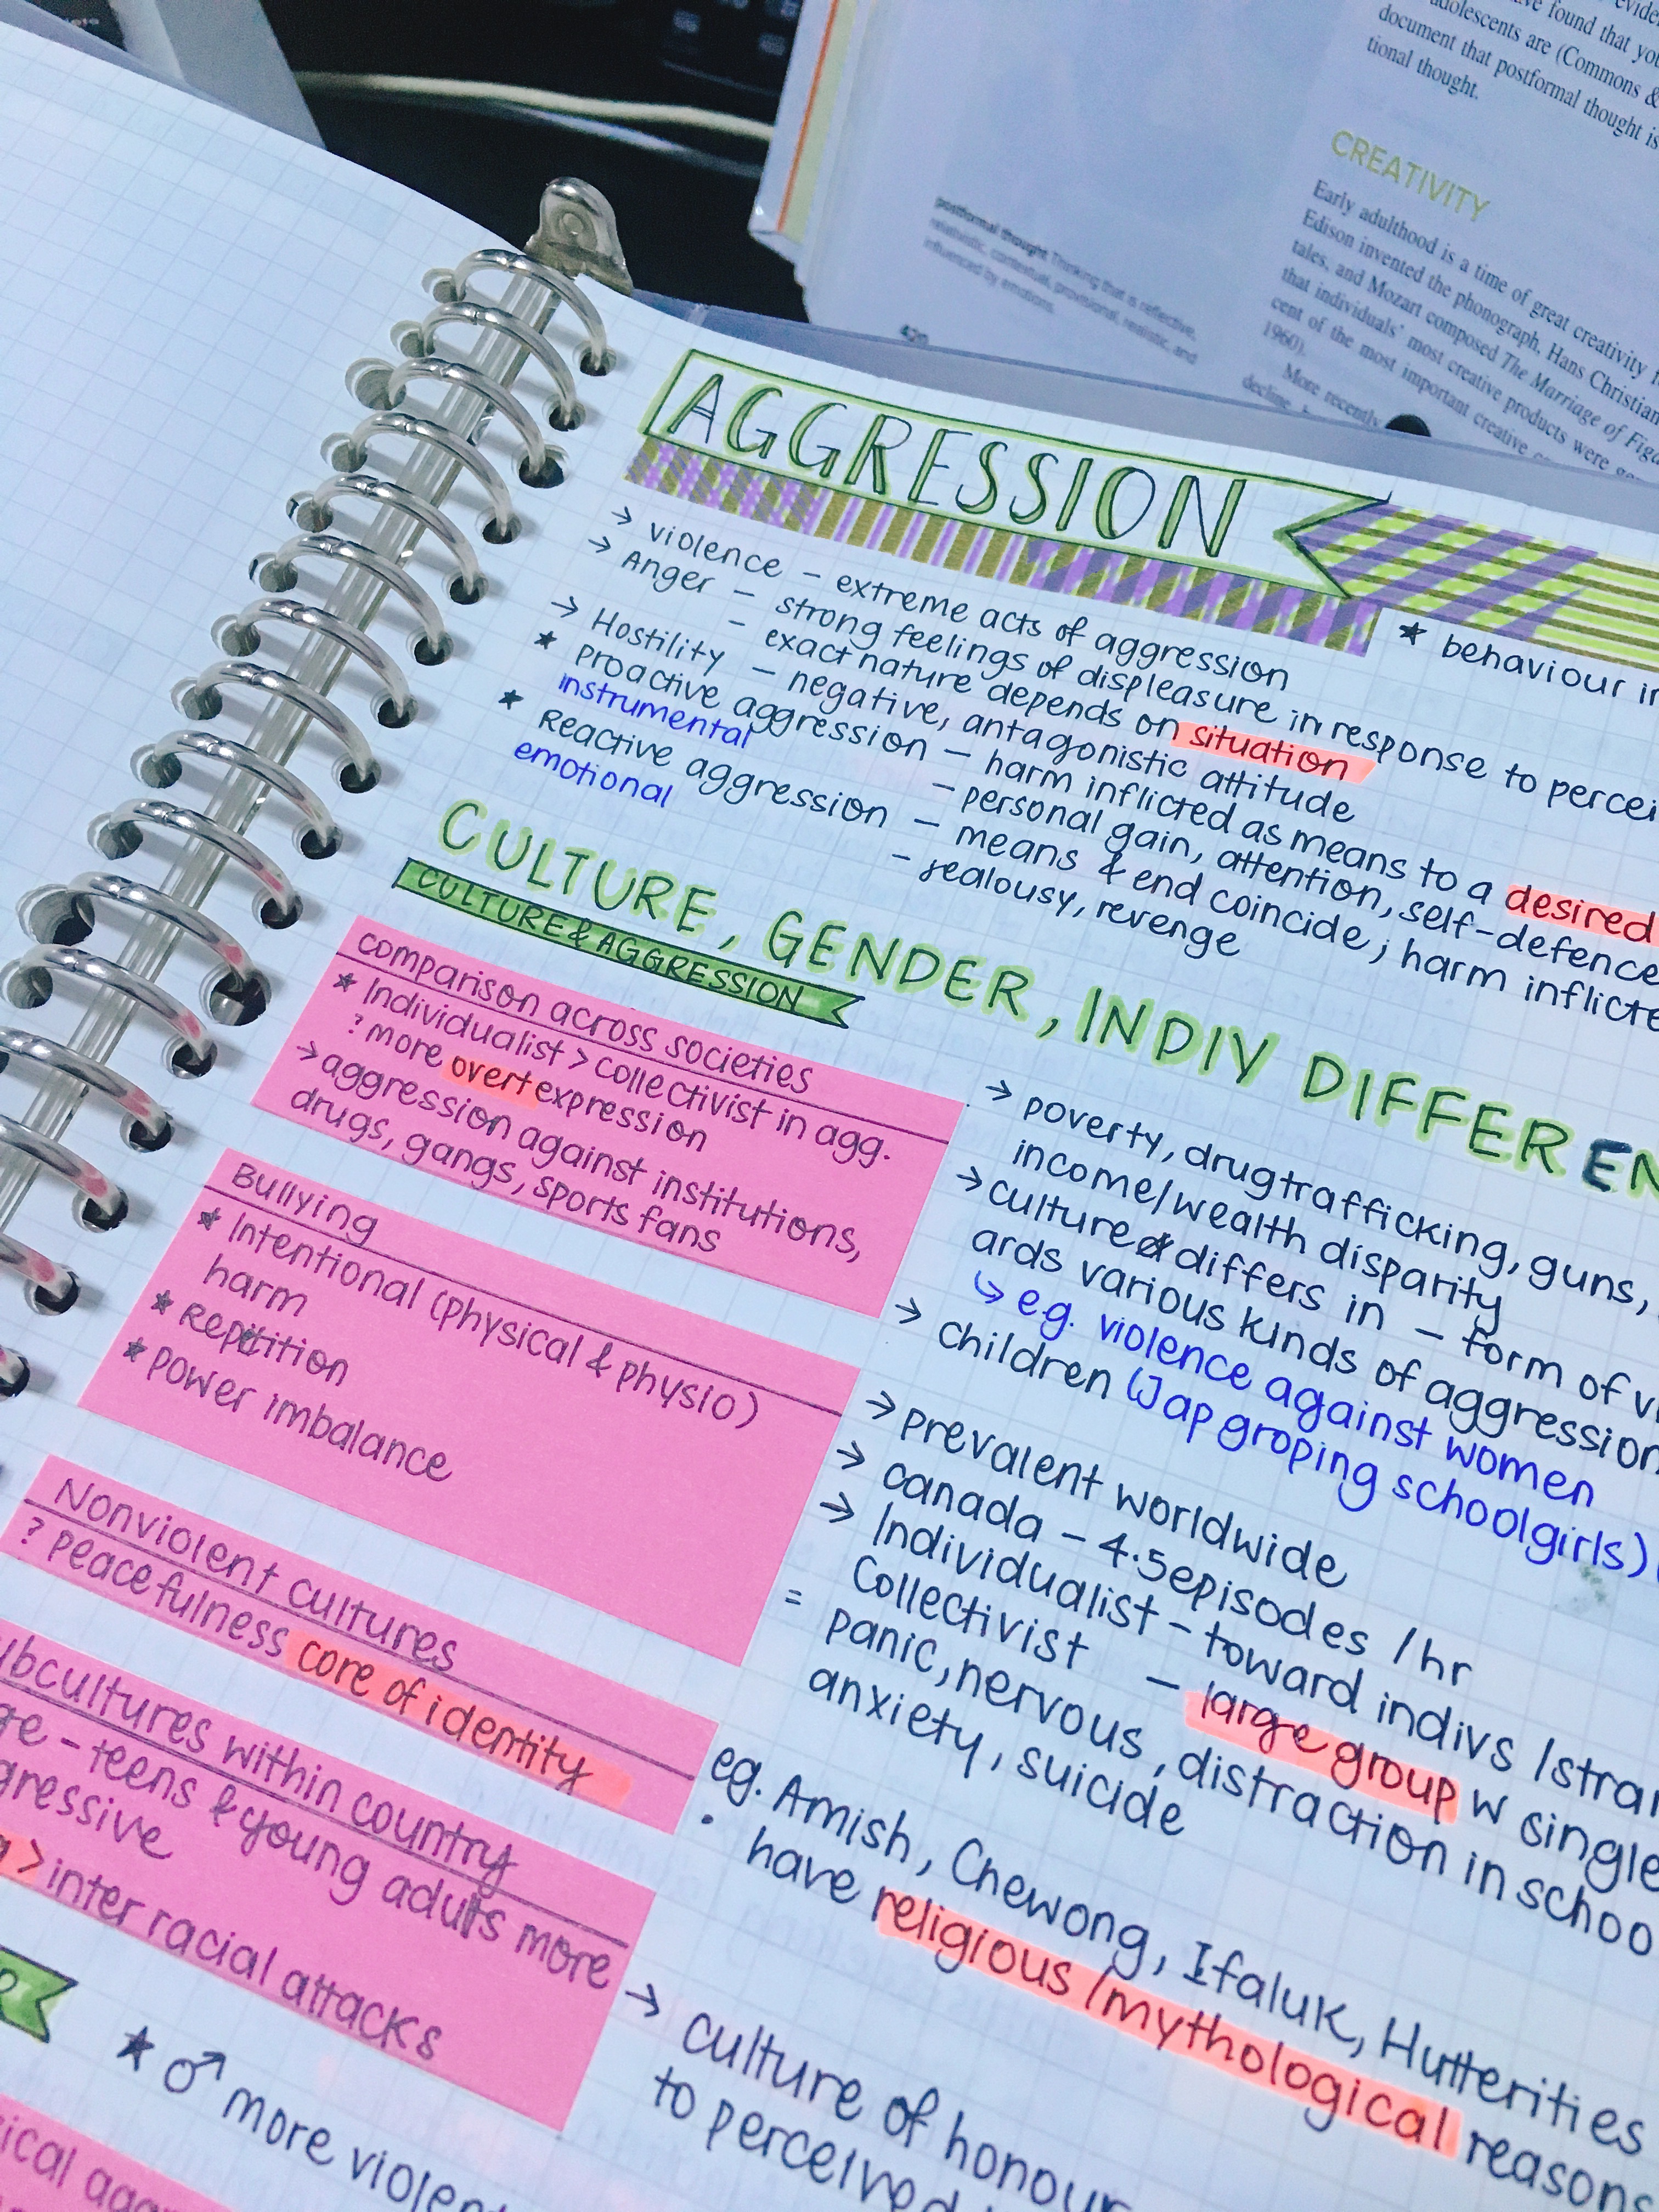 evide
ve found that you
adolescents are (Commons &
document that postformal thought is
tional thought.
CREATIVITY
Early adulthood is a time of great creativity f
Edison invented the phonograph, Hans Christian
tales, and Mozart composed The Marriage of Figa
that individuals' most creative products were ge
cent of the most important creative
1960).
More recently,
decline,
postformal thought Thinking that is reflective,
relativistic, contextual, provisional, realistic, and
influenced by emotions.
AGGRESSION
★ behaviour in
→ violence – extreme acts of aggression
→ Anger – strong feelings of displeasure in response to percei
– exact nature depends on situation
→ Hostility – negative, antagonistic attitude
★ Proactive aggression – harm inflicted as means to a desired
instrumental – personal gain, attention, self-defence
★ Reactive aggression – means & end coincide; harm inflicte
emotional – jealousy, revenge
CULTURE, GENDER, INDIV DIFFEREN
CULTURE & AGGRESSION
Comparison across societies
★ Individualist > Collectivist in agg.
? more overt expression
→ aggression against institutions,
drugs, gangs, sports fans
→ poverty, drug trafficking, guns,
income/wealth disparity
→ culture differs in – form of vi
ards various kinds of aggression
↳ e.g. violence against women
→ children (Jap groping schoolgirls)
Bullying
★ Intentional (physical & physio)
harm
★ Repetition
★ power imbalance
→ prevalent worldwide
→ canada – 4.5 episodes /hr
→ Individualist – toward indivs /stran
Collectivist – large group w single
= panic, nervous, distraction in schoo
anxiety, suicide
Nonviolent cultures
? Peacefulness core of identity
eg. Amish, Chewong, Ifaluk, Hutterities
• have religious /mythological reasons
ubcultures within country
ge – teens & young adults more
gressive
> inter racial attacks
→ culture of honour
to perceived
R
★ ♂ more violent
ical agg